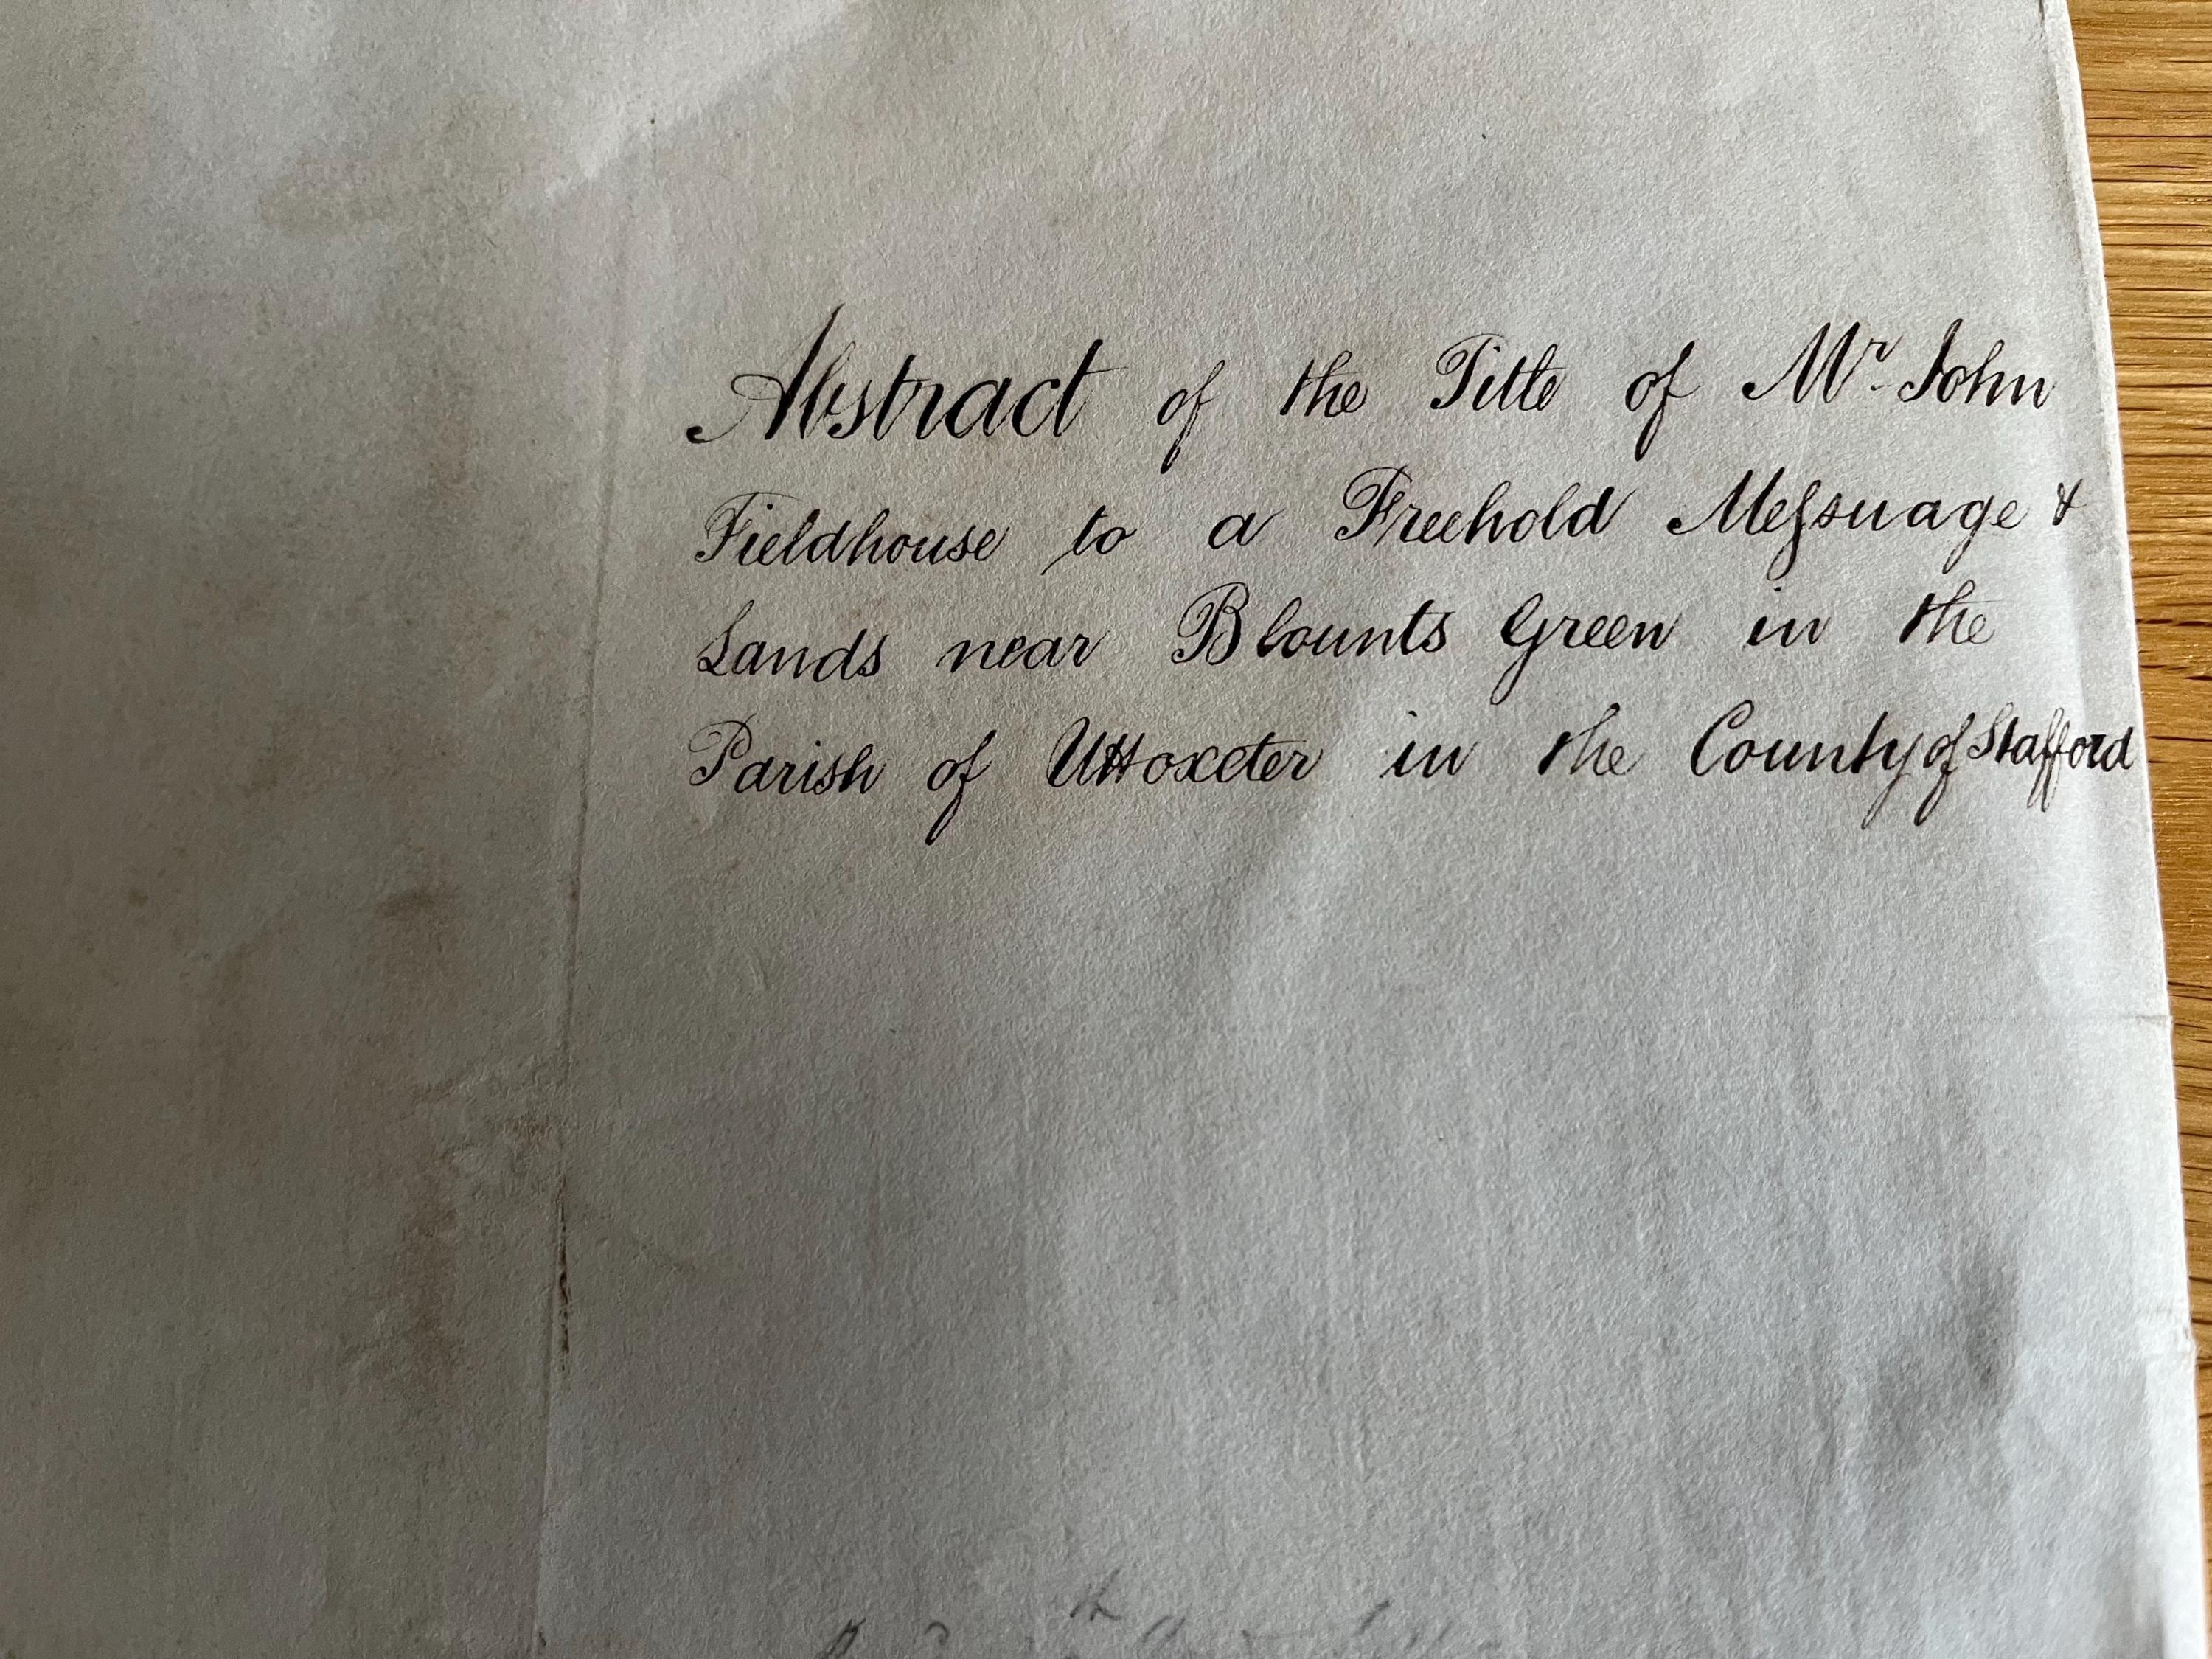 Abstract of the Title of Mr John
Fieldhouse to a Freehold Meſsuage &
Lands near Blounts Green in the
Parish of Uttoxeter in the County of Stafford